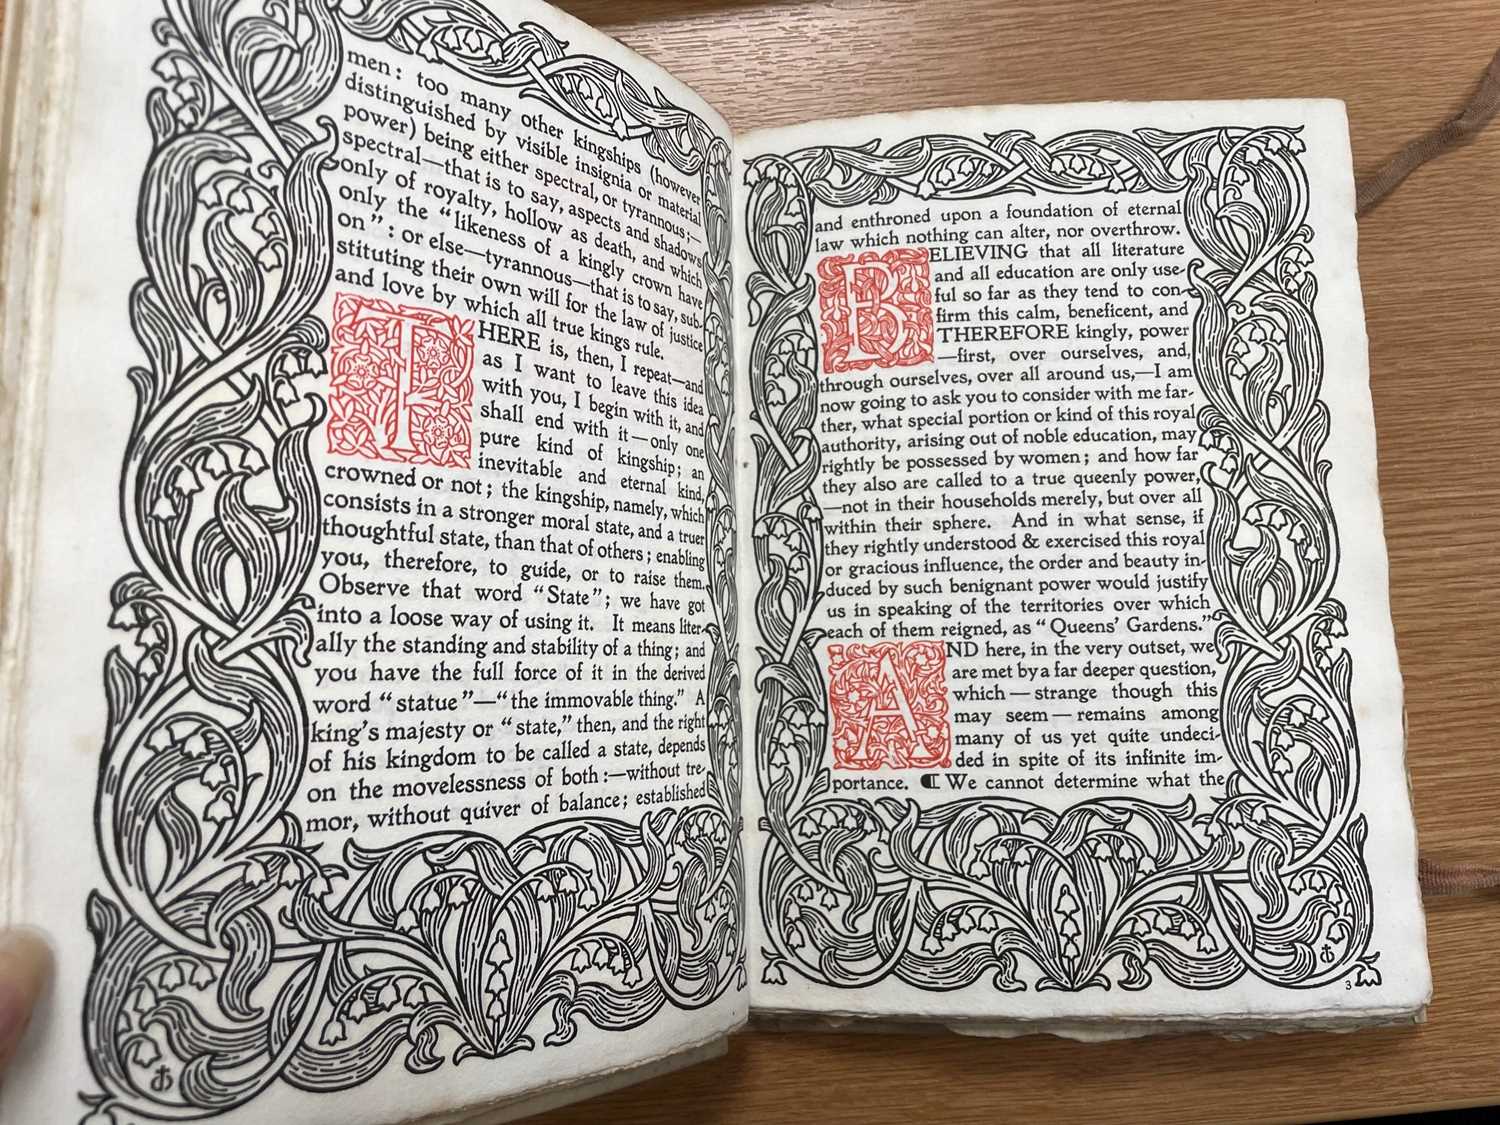 men: too many other kingships (however
distinguished by visible insignia or material
power) being either spectral, or tyrannous;—
spectral—that is to say, aspects and shadows
only of royalty, hollow as death, and which
only the "likeness of a kingly crown have
on": or else—tyrannous—that is to say, sub-
stituting their own will for the law of justice
and love by which all true kings rule.
THERE is, then, I repeat—and
as I want to leave this idea
with you, I begin with it, and
shall end with it—only one
pure kind of kingship; an
inevitable and eternal kind,
crowned or not; the kingship, namely, which
consists in a stronger moral state, and a truer
thoughtful state, than that of others; enabling
you, therefore, to guide, or to raise them.
Observe that word "State"; we have got
into a loose way of using it. It means liter-
ally the standing and stability of a thing; and
you have the full force of it in the derived
word "statue"—"the immovable thing." A
king's majesty or "state," then, and the right
of his kingdom to be called a state, depends
on the movelessness of both:—without tre-
mor, without quiver of balance; established
and enthroned upon a foundation of eternal
law which nothing can alter, nor overthrow.
BELIEVING that all literature
and all education are only use-
ful so far as they tend to con-
firm this calm, beneficent, and
THEREFORE kingly, power
—first, over ourselves, and,
through ourselves, over all around us,—I am
now going to ask you to consider with me far-
ther, what special portion or kind of this royal
authority, arising out of noble education, may
rightly be possessed by women; and how far
they also are called to a true queenly power,
—not in their households merely, but over all
within their sphere. And in what sense, if
they rightly understood & exercised this royal
or gracious influence, the order and beauty in-
duced by such benignant power would justify
us in speaking of the territories over which
each of them reigned, as "Queens' Gardens."
AND here, in the very outset, we
are met by a far deeper question,
which—strange though this
may seem—remains among
many of us yet quite undeci-
ded in spite of its infinite im-
portance. ¶ We cannot determine what the
3